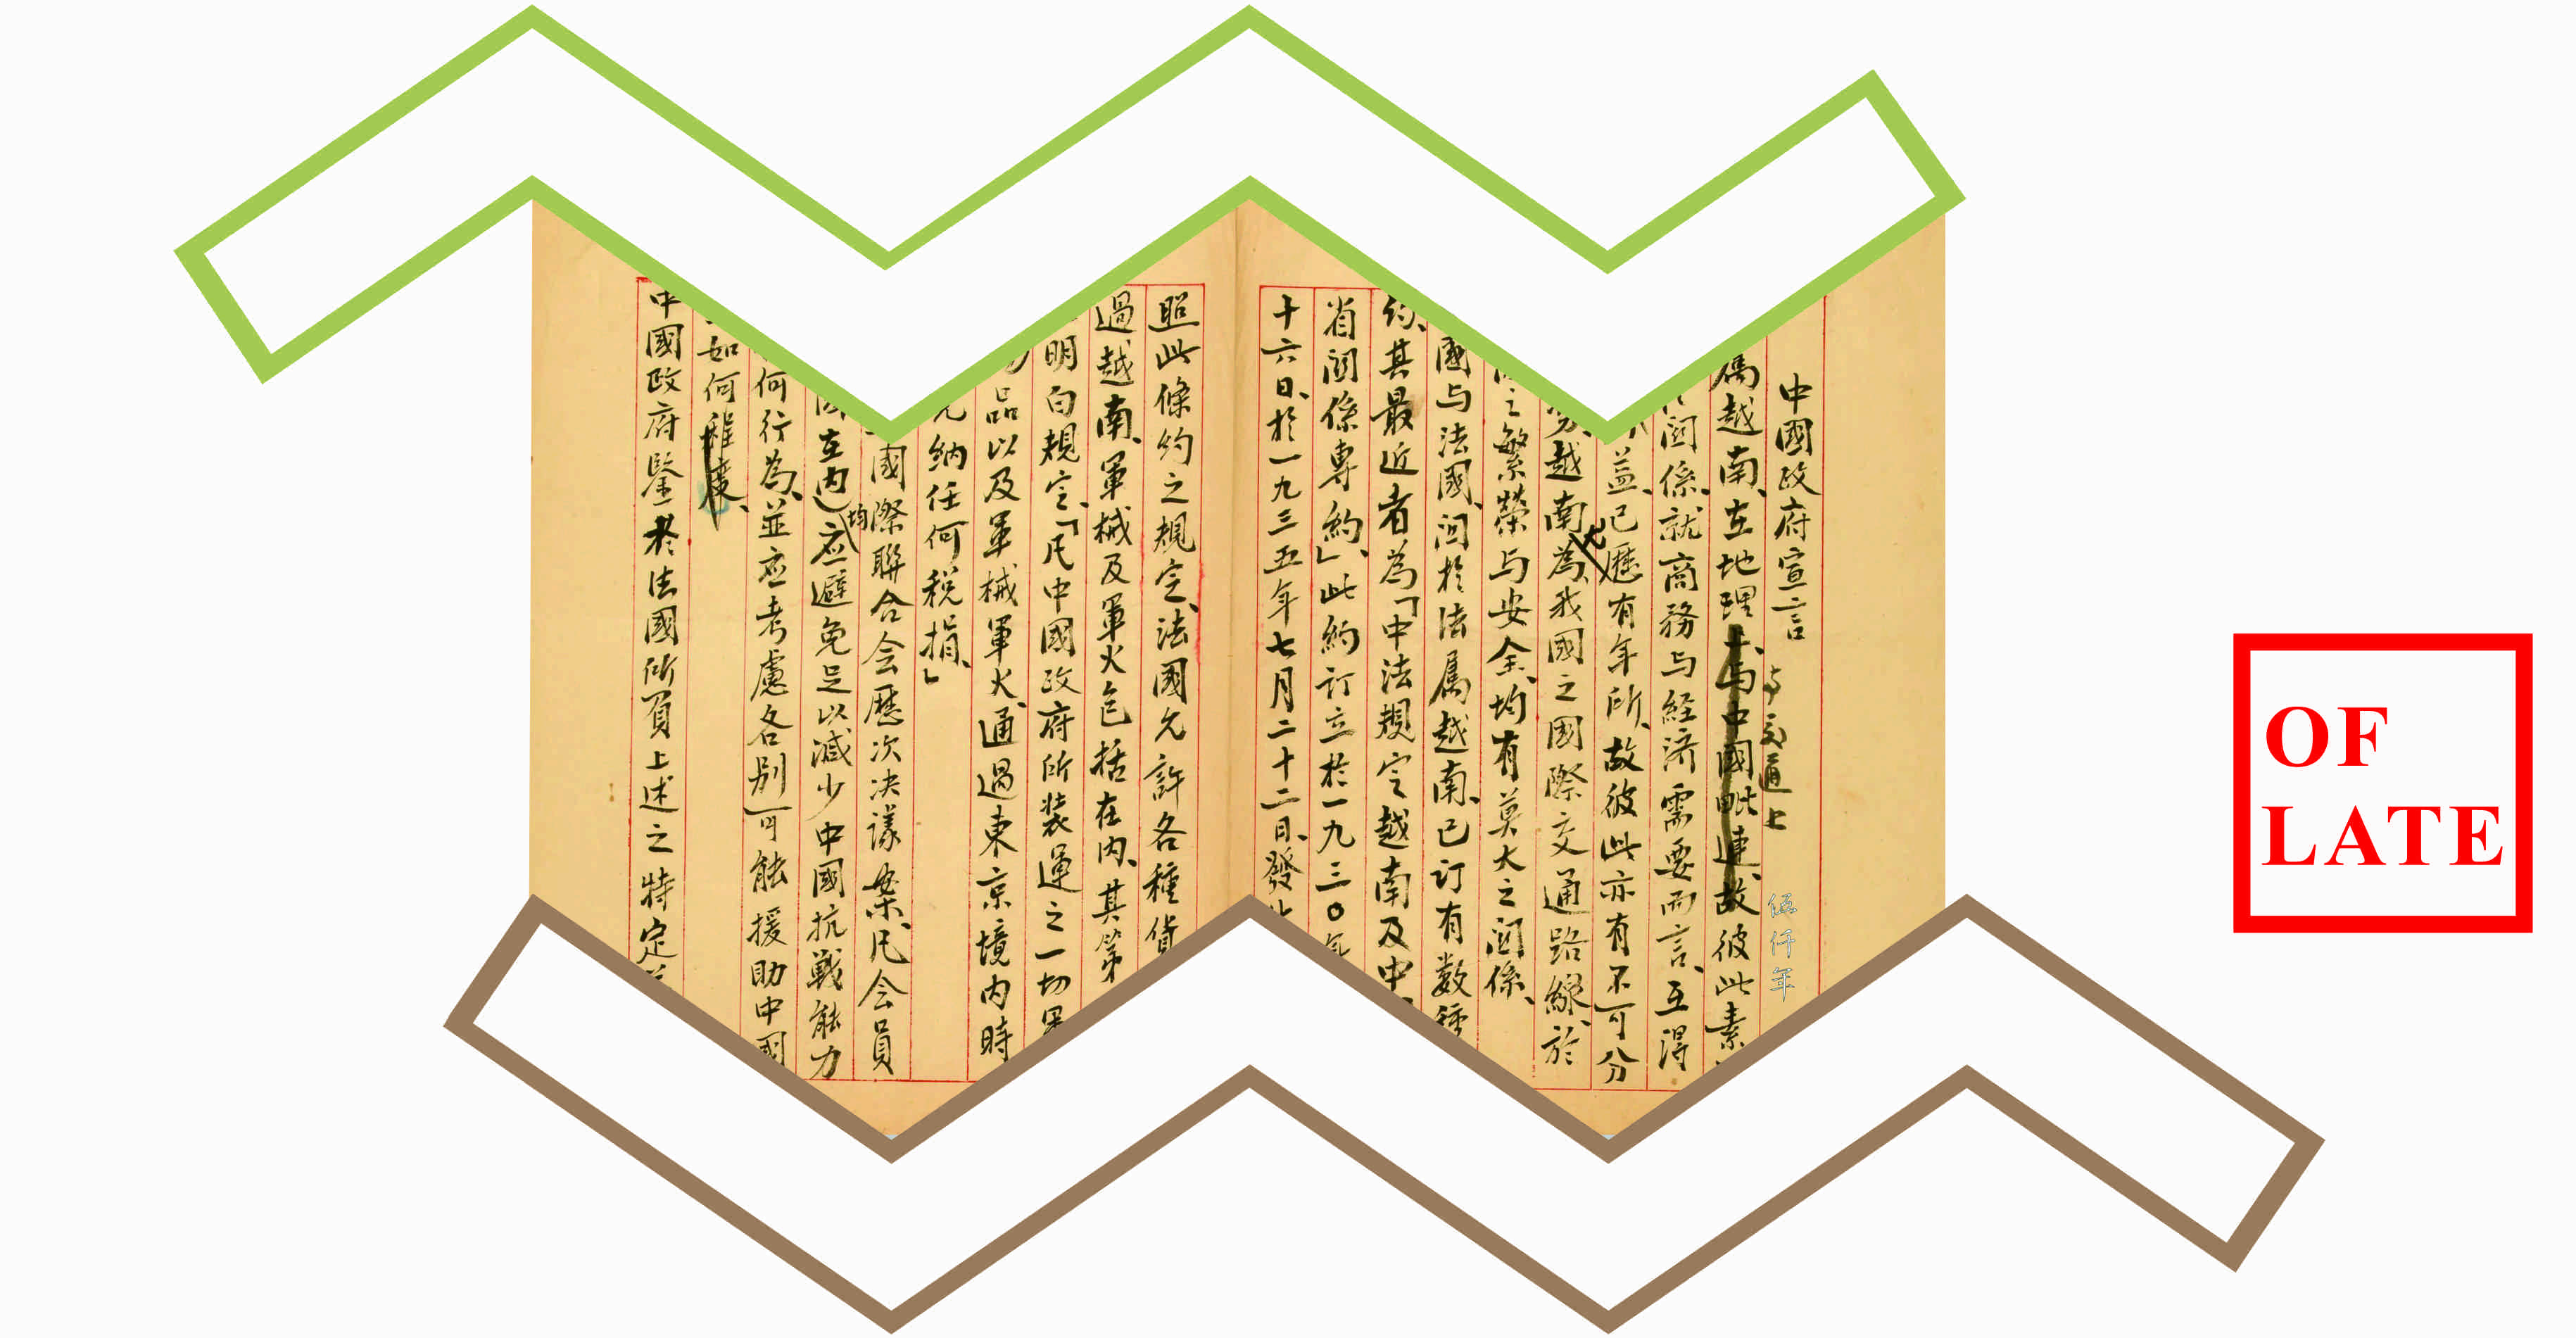 中國政府宣言
与交通上
伍仟年
屬越南、在地理上、与中國毗連、故彼此素
関係、就商務与経済需要而言、互得
益、已歷有年所、故彼此亦有不可分
越南為我國之國際交通路線、於
之繁榮与安全、均有莫大之関係、
國与法國、関於法屬越南、已订有数種
約、其最近者為「中法規定越南及中
省関係専約」、此約订立於一九三〇年
十六日、於一九三五年七月二十二日、發
照此條約之規定、法國允許各種貨
過越南、軍械及軍火包括在內、其第
明白規定、「凡中國政府所装運之一切軍
品以及軍械軍火、通過東京境內時
納任何税捐、」
國際聯合会歷次決議案、凡会員
在內）均應避免足以減少中國抗戰能力
何行為、並應考慮各別可能援助中國
如何程度、
中國政府鑒於法國所負上述之特定
OF
LATE